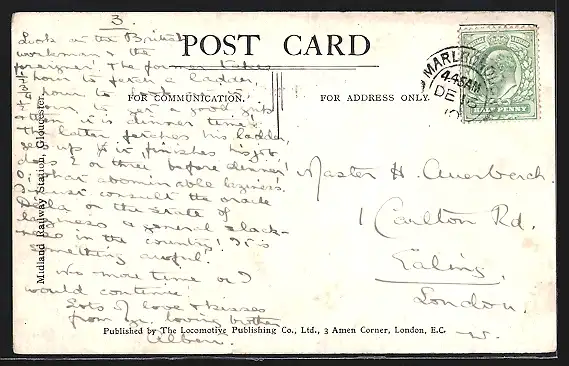 3.
POST CARD
FOR COMMUNICATION.
FOR ADDRESS ONLY.
Midland Railway Station, Gloucester
MARLBOROUGH
4.45AM
DE 12
10
HALFPENNY
Look at the British
workman & the
foreigner. The former takes
1 hour to fetch a ladder
hour to
hour to get a good grip
then it is dinner time,
the latter fetches his ladder,
gets up it, finishes his job,
does 2 or three before dinner!
O! what abominable laziness.
I must consult the oracle
on the state of
laziness & general slack-
ness in the country! It is
something awful.
No more time or I
would continue.
Lots of love & kisses
from yr. loving brother
Alben.
Master H. Auerbach.
1 Carlton Rd.
Ealing.
London.
W.
Published by The Locomotive Publishing Co., Ltd., 3 Amen Corner, London, E.C.